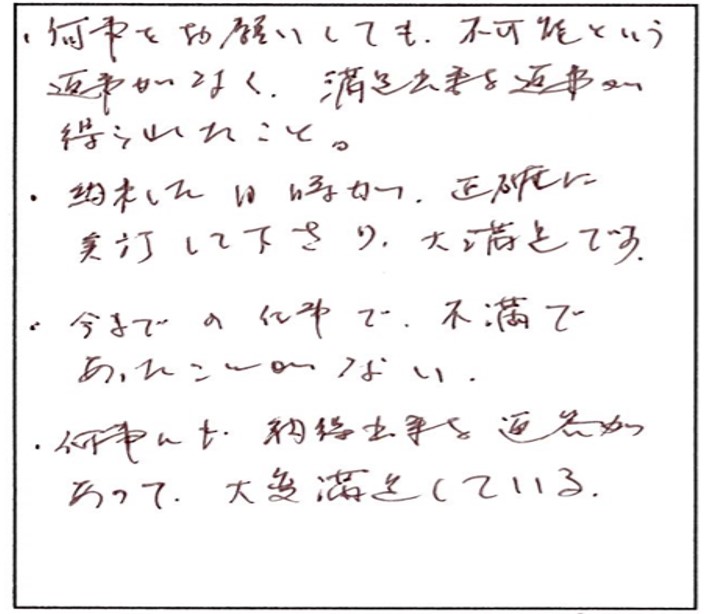 ・何事をお願いしても、不可能という
返事がなく、満足出来る返事が
得られたこと。
・約束した日時が、正確に
実行して下さり、大満足です。
・今までの仕事で、不満で
あったことがない。
・何事にも、納得出来る返答が
あって、大変満足している。